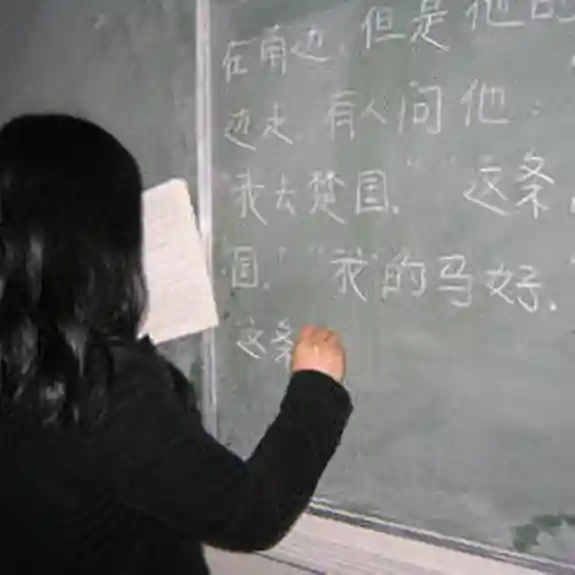 在南边，但是他的
边走，有人问他：
"我去楚国。" "这条
国。" "我的马好，
这条